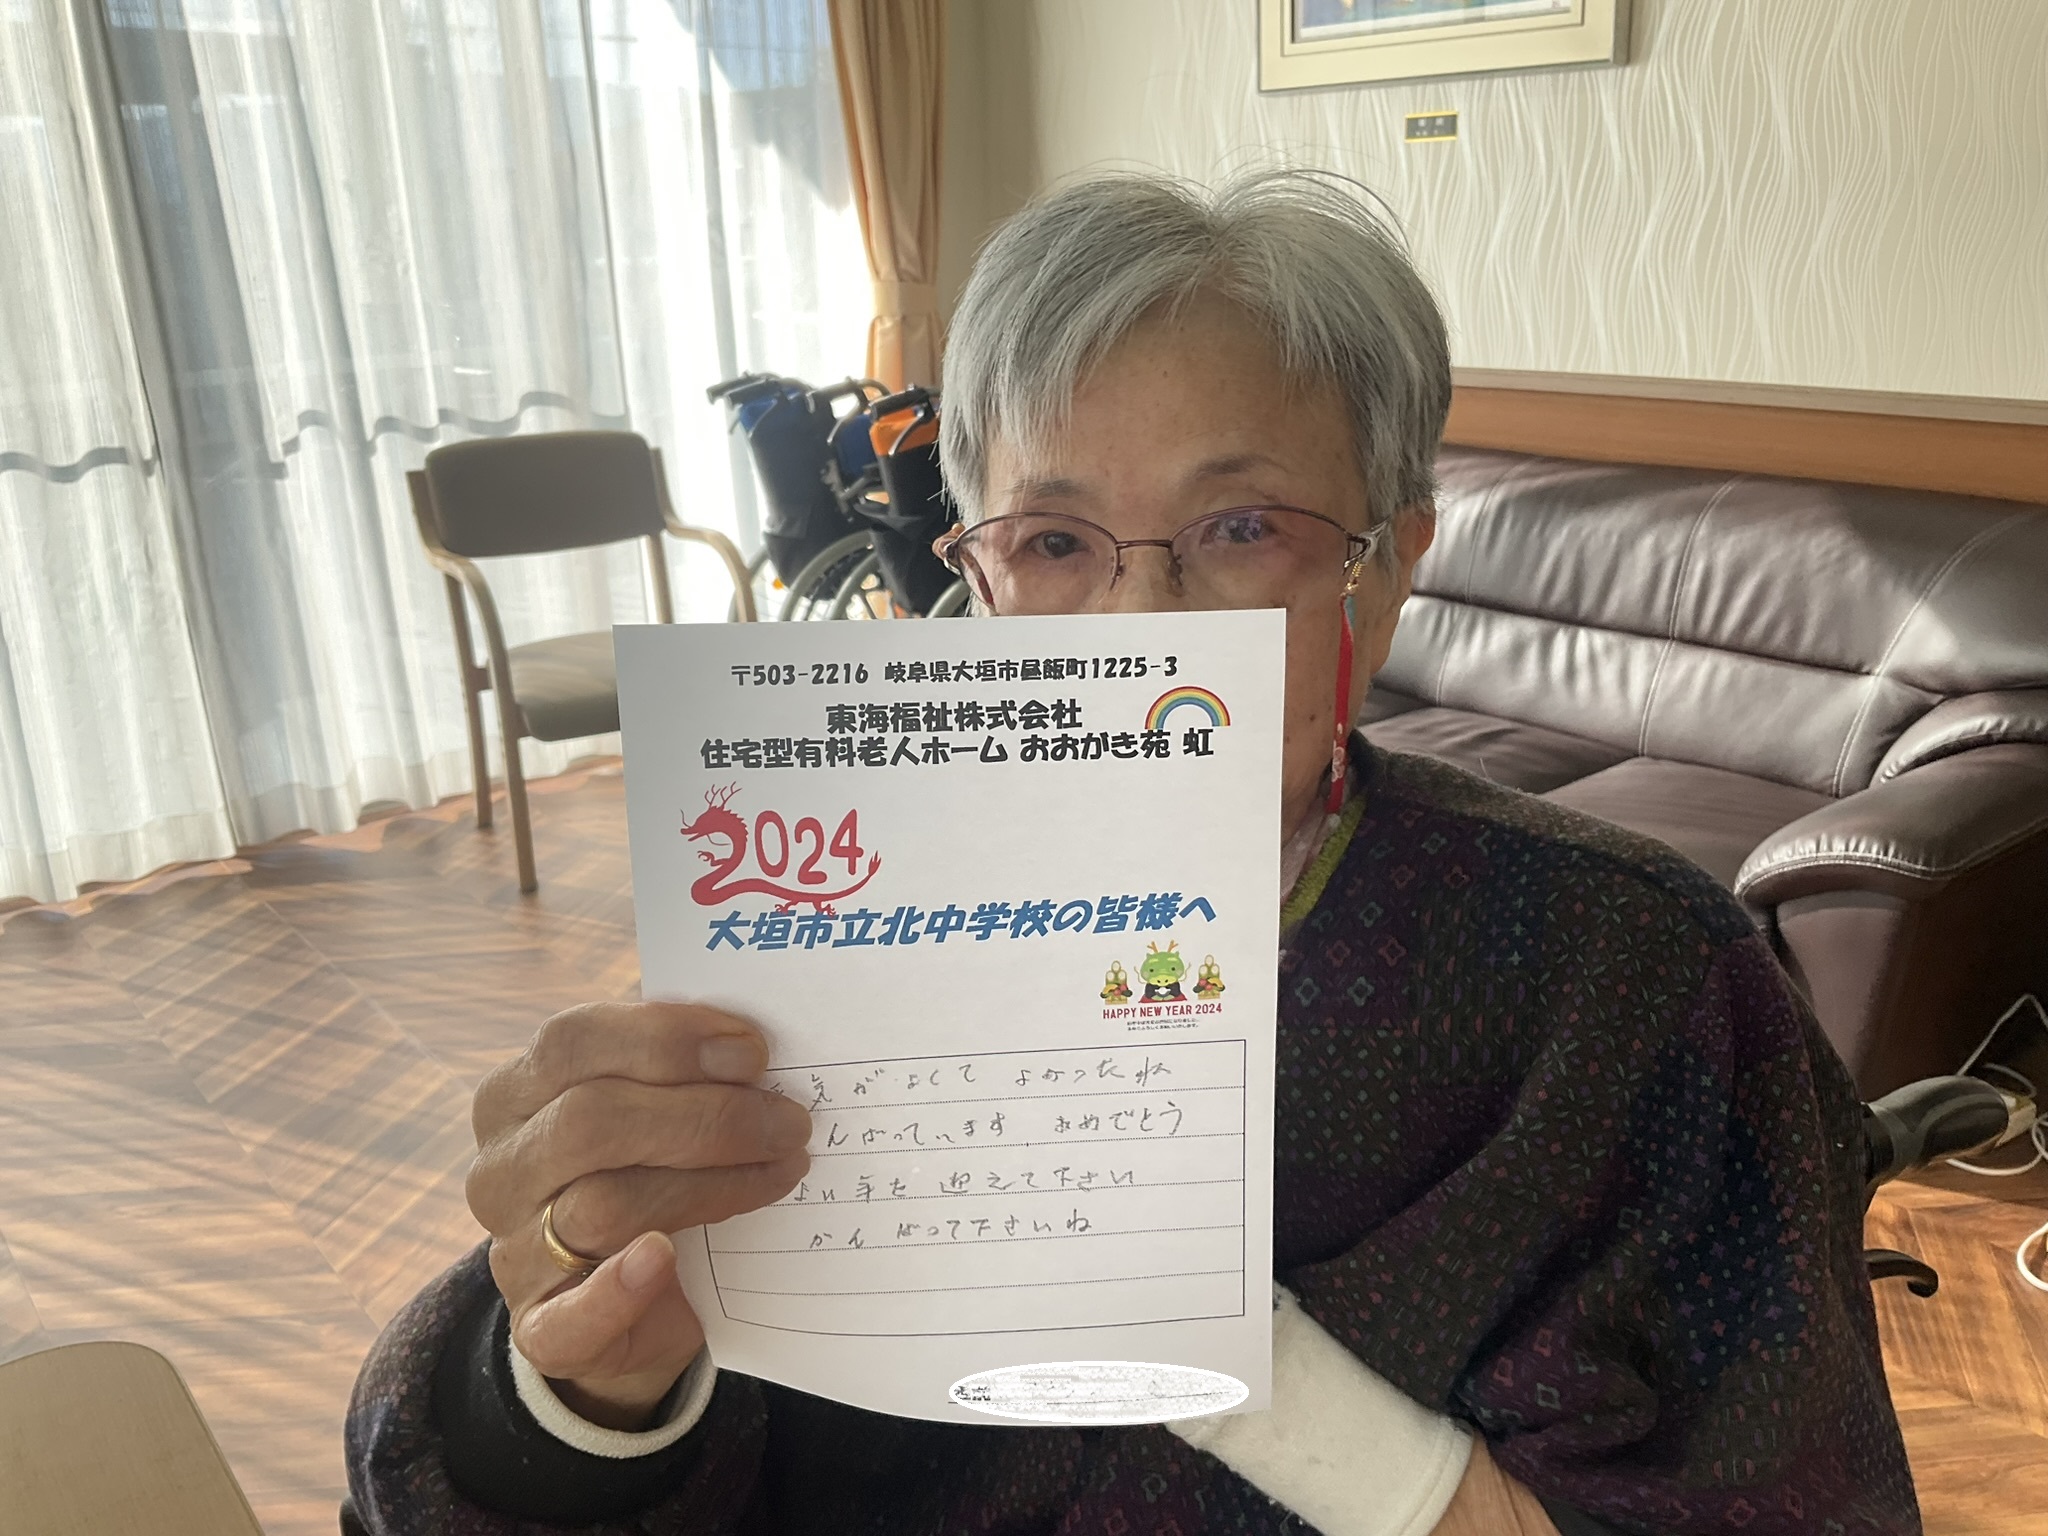 〒503-2216 岐阜県大垣市昼飯町1225-3
東海福祉株式会社
住宅型有料老人ホーム おおがき苑 虹
2024
大垣市立北中学校の皆様へ
HAPPY NEW YEAR 2024
気がよくて よかったね
んばっています おめでとう
よい年を 迎えて下さい
がんばって下さいね